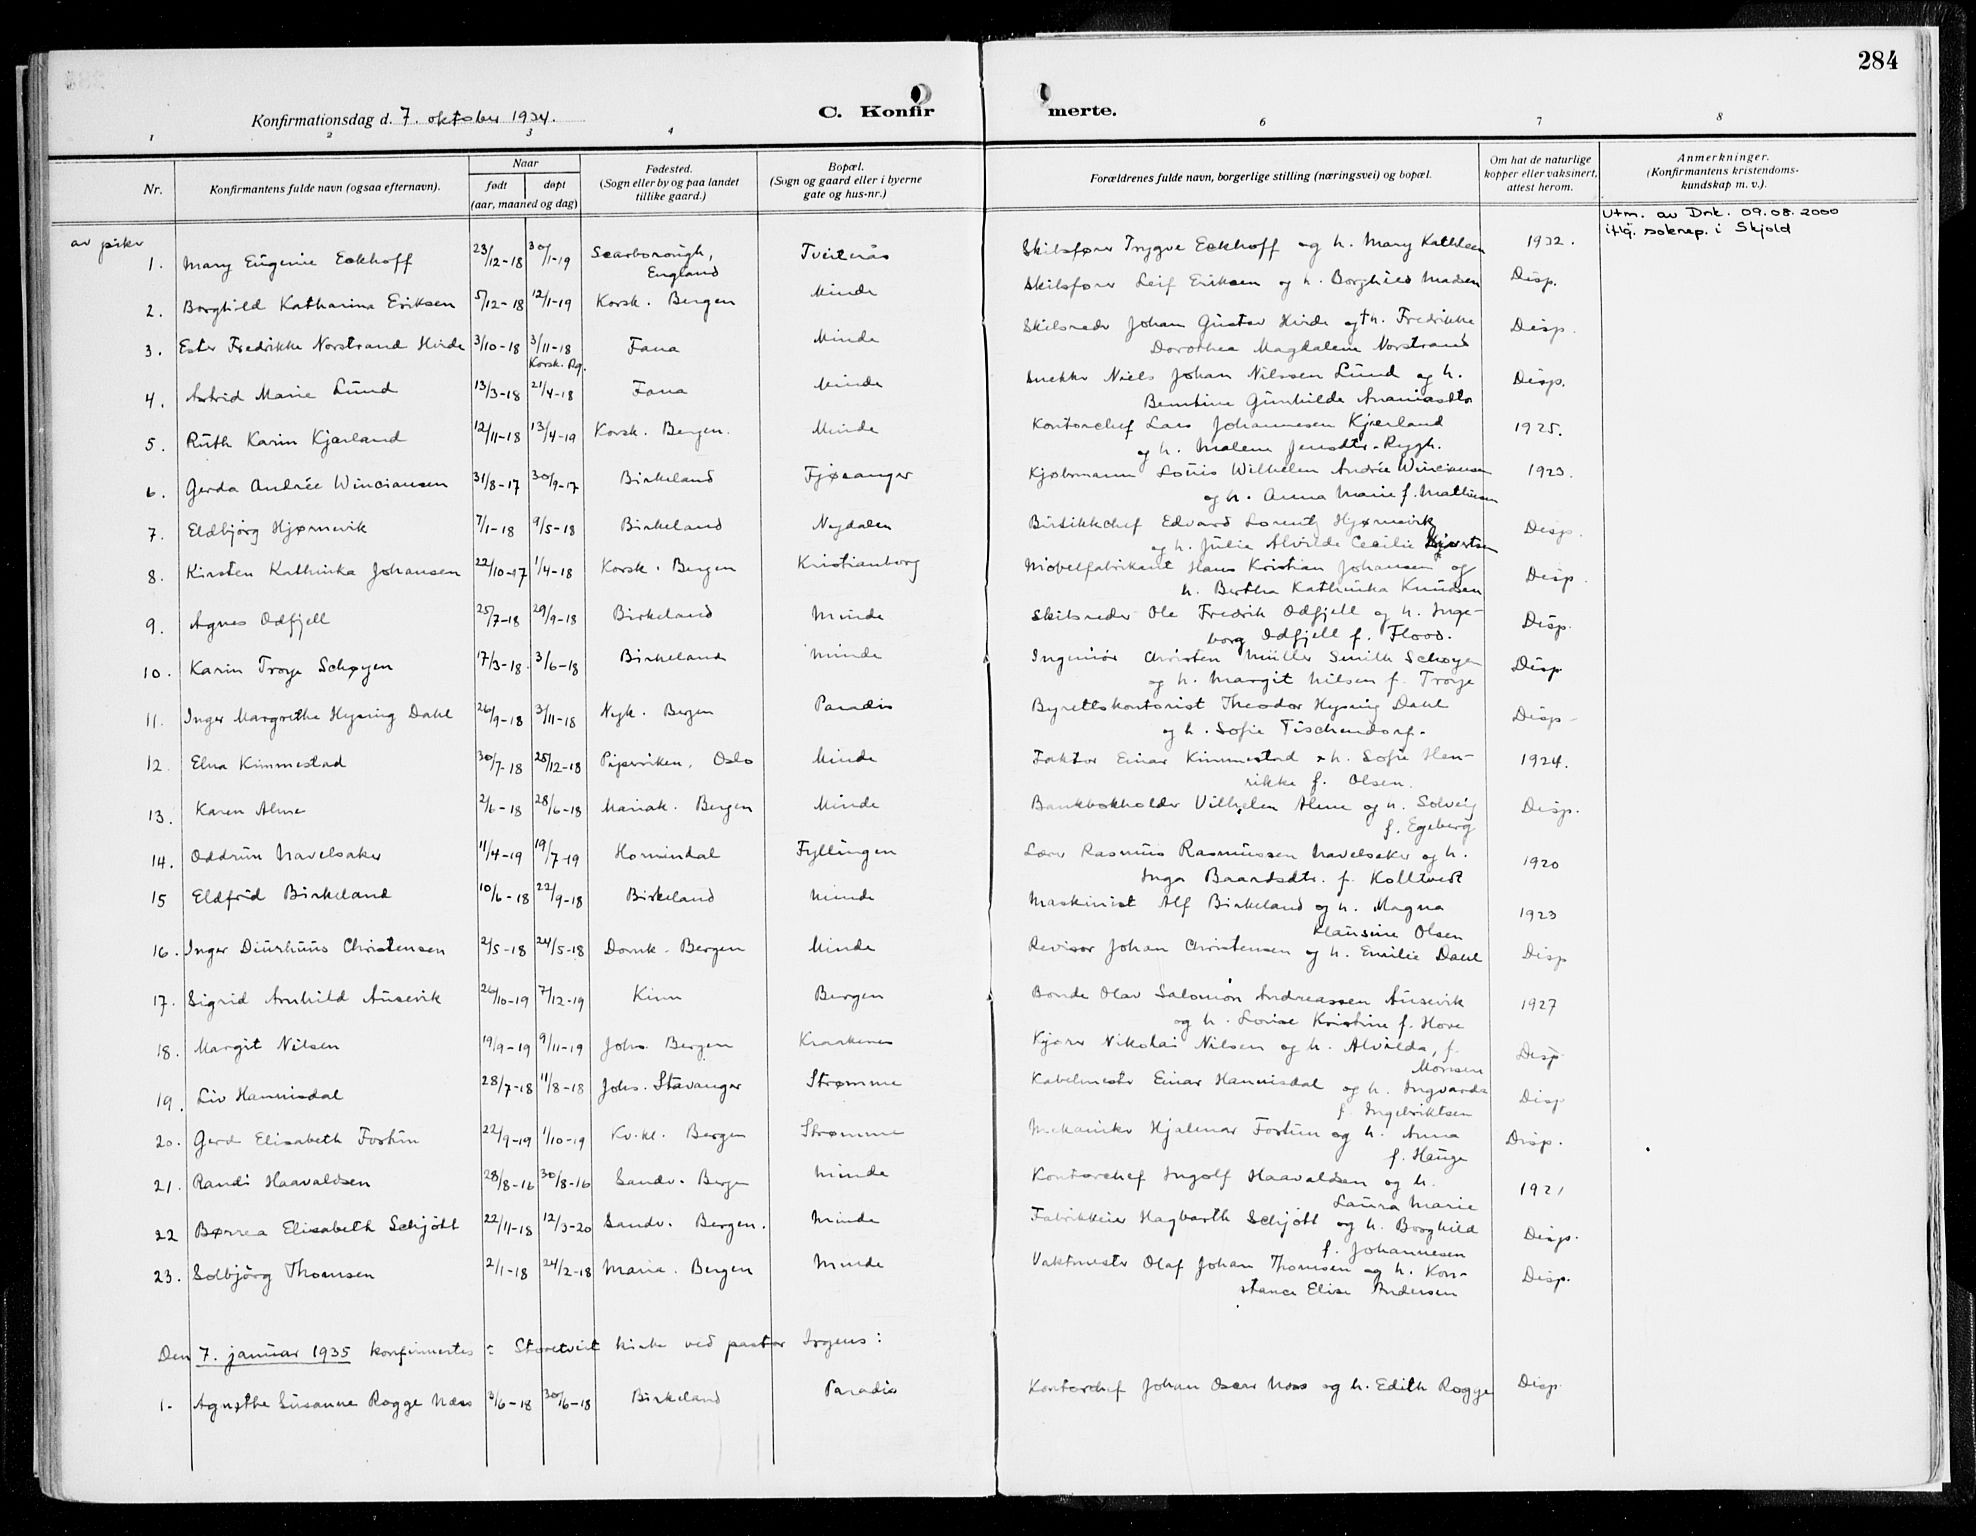 284
Konfirmationsdag d. 7. oktober 1934.
C. Konfirmerte.
1 2 3 4 6 7 8
Nr. Konfirmantens fulde navn (ogsaa efternavn). Naar født døpt (aar, maaned og dag) Fødested. (Sogn eller by og paa landet tillike gaard.) Bopæl. (Sogn og gaard eller i byerne gate og hus-nr.) Forældrenes fulde navn, borgerlige stilling (næringsvei) og bopæl. Om hat de naturlige kopper eller vaksinert, attest herom. Anmerkninger. (Konfirmantens kristendomskundskap m. v.).
Utm. av Dnk. 09.08.2000
iflg. sokrep. i Skjold
av piker
1. Mary Eugenie Eckhoff 23/12-18 30/1-19 Scarborough, England Tveiterås Skibsfører Trygve Eckhoff og h. Mary Kathleen 1932.
2. Borghild Katharina Eriksen 5/12-18 12/1-19 Korsk. Bergen Minde Skibsfører Leif Eriksen og h. Borghild Madsen Disp.
3. Ester Fredrikke Norstrand Hirde 3/10-18 3/11-18 Korsk. Bg. Fana Minde Skibsreder Johan Gustav Hirde og h. Fredrikke
Dorothea Magdalene Norstrand Disp.
4. Astrid Marie Lund 13/3-18 21/4-18 Fana Minde Snekker Niels Johan Nilssen Lund og h.
Berntine Gunhilde Ananiasdtr Disp.
5. Ruth Karin Kjærland 12/11-18 13/4-19 Korsk. Bergen. Minde Kontorchef Lars Johannesen Kjærland
og h. Malene Jensdtr. Rygh. 1925.
6. Gerda Andrée Winciansen 31/8-17 30/9-17 Birkeland Fjøsanger Kjøbmann Louis Wilhelm Andrée Winciansen
og h. Anna Marie f. Mathiesen 1923.
7. Eldbjörg Hjørnevik 7/1-18 9/5-18 Birkeland Nydalen Butikkchef Edvard Lorentz Hjørnevik
og h. Julie Alvilde Cecilie Disp.
8. Kirsten Kathinka Johansen 22/10-17 1/4-18 Korsk. Bergen Kristianborg Møbelfabrikant Hans Kristian Johansen og
h. Bertha Kathinka Knudsen Disp.
9. Agnes Odfjell 25/7-18 29/9-18 Birkeland Minde Skibsreder Ole Fredrik Odfjell og h. Inge-
borg Odfjell f. Flood. Disp.
10. Karin Troye Schøyen 17/3-18. 3/6-18 Birkeland Minde Ingeniør Christen Müller Smith Schøyen
og h. Margit Nilsen f. Troye Disp
11. Inger Margrethe Hysing Dahl 26/9-18 3/11-18 Nyk. Bergen Paradis Byrettskontorist Theodor Hysing Dahl
og h. Sofie Tischendorf. Disp
12. Elna Kimmestad 30/7-18 25/12-18 Pipervirken, Oslo Minde Faktor Einar Kimmestad & h. Sofie Hen-
rikke f. Olsen. 1924.
13. Karen Alme 2/6-18 28/6-18 Mariak. Bergen Minde Bankbokholder Vilhelm Alme og h. Solveig
f. Egeberg Disp.
14. Oddrun Navelsaker 11/4-19 19/7-19 Hornindal Fyllingen Lærer Rasmus Rasmussen Navelsaker og h.
Inga Baardsdtr. f. Kolltveit 1920
15 Eldfrid Birkeland 10/6-18 22/9-18 Birkeland Minde Maskinist Alf Birkeland og h. Magna
Klausine Olsen 1923
16. Inger Diurhuus Christensen 2/5-18 24/5-18 Domk. Bergen Minde Revisor Johan Christensen og h. Emilie Dahl Disp
17. Sigrid Arnhild Ausevik 26/10-19 7/12-19 Kinn Bergen Bonde Olav Salomon Andreassen Ausevik
og h. Lovise Kristine f. Hove 1927
18. Margit Nilsen 19/9-19 9/11-19 Johs. Bergen Kraakenes Kjører Nikolai Nilsen og h. Alvilda, f.
Monsen Disp
19. Liv Hannisdal 28/7-18 11/8-18 Johs. Stavanger Strømme Kabelmester Einar Hannisdal og h. Ingvarda
f. Ingebriktsen Disp
20. Gerd Elisabeth Fostun 22/9-19 1/10-19 Kv.kl. Bergen Strømme Mekaniker Hjalmar Fostun og h. Anna
f. Hauge Disp.
21. Randi Haavaldsen 28/8-16 30/8-16 Sandv. Bergen Minde Kontorchef Ingolf Haavaldsen og h.
Laura Marie 1921
22 Børrea Elisabeth Schjött 22/11-18 12/3-20 Sandv. Bergen. Minde Fabrikkeier Hagbarth Schjött og h. Borghild
f. Johannesen Disp.
23. Solbjörg Thomsen 2/1-18 24/2-18 Maria. Bergen Minde Vaktmester Olaf Johan Thomsen og h. Kon-
stance Elise Andersen Disp.
Den 7. januar 1935 konfirmertes i Storetveit kirke ved pastor Irgens:
1. Agnethe Susanne Rogge Næss 3/6-18 30/6-18 Birkeland Paradis Kontorchef Johan Oscar Næss og h. Edith Rogge Disp